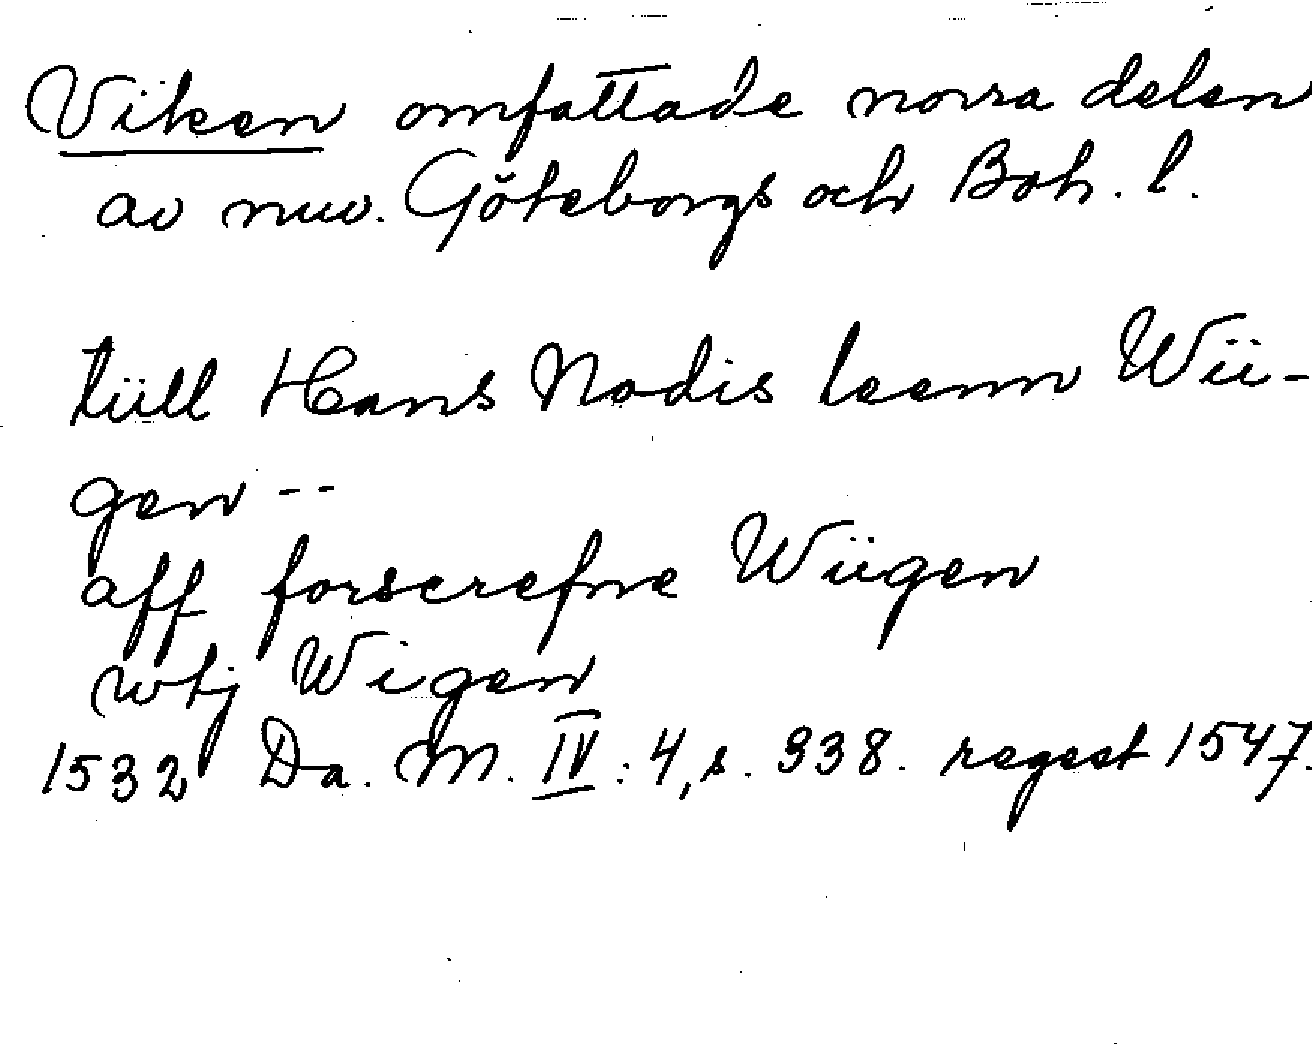 Viken omfattade norra delen
av nuv. Göteborgs och Boh. l.
tüll Hans Nodis leenn Wii-
gen --
aff forscrefne Wiigen
wtj Wigen
1532 Da. M. IV:4, s. 338. regest 1547.